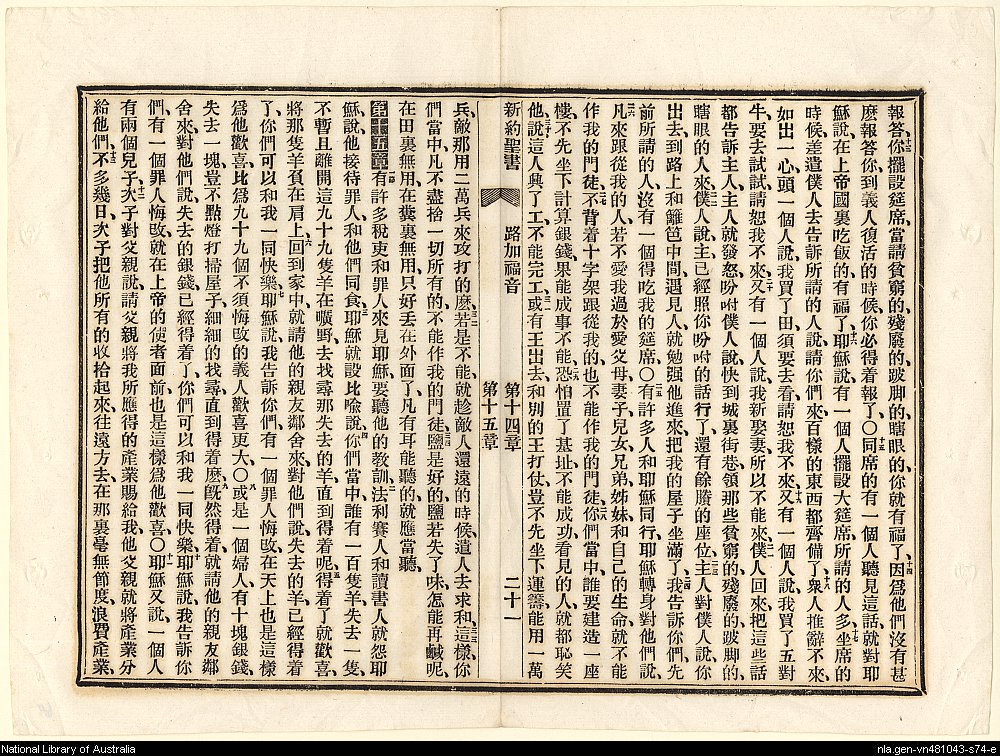 報答、你擺設筵席、當請貧窮的、殘廢的、跛脚的、瞎眼的、你就有福了、因爲他們沒有甚
麽報答你、到義人復活的時候、你必得着報了、〇同席的有一個人聽見這話、就對耶
穌說、在上帝國裏吃飯的有福了、耶穌說、有一個人擺設大筵席、所請的人多、坐席的
時候、差遣僕人去告訴所請的人說、請你們來、百樣的東西都齊備了、衆人推辭不來、
如出一心、頭一個人說、我買了田、須要去看、請恕我不來、又有一個人說、我買了五對
牛、要去試試、請恕我不來、又有一個人說、我新娶妻、所以不能來、僕人回來、把這些話
都告訴主人、主人就發怒、吩咐僕人說、快到城裏街巷、領那些貧窮的、殘廢的、跛脚的、
瞎眼的人來、僕人說、主已經照你吩咐的話行了、還有餘賸的座位、主人對僕人說、你
出去到路上和籬笆中間、遇見人就勉强他進來、把我的屋子坐滿了、我告訴你們、先
前所請的人、沒有一個得吃我的筵席、〇有許多人和耶穌同行、耶穌轉身對他們說、
凡來跟從我的人、若不愛我過於愛父母、妻子、兒女、兄弟、姊妹、和自己的生命、就不能
作我的門徒、不背着十字架跟從我的、也不能作我的門徒、你們當中誰要建造一座
樓、不先坐下計算銀錢、果能成事不能、恐怕置了基址、不能成功、看見的人就都恥笑
他、說這人興了工、不能完工、或有王出去和別的王打仗、豈不先坐下運籌、能用一萬
新約聖書 路加福音 第十四章 二十一
第十五章
兵、敵那用二萬兵來攻打的麽、若是不能、就趁敵人還遠的時候、遣人去求和、這樣、你
們當中、凡不盡捨一切所有的、不能作我的門徒、鹽是好的、鹽若失了味、怎能再鹹呢、
在田裏無用、在糞裏無用、只好丟在外面了、凡有耳能聽的、就應當聽、
第十五章 有許多稅吏和罪人來見耶穌、要聽他的教訓、法利賽人和讀書人就怨耶
穌說、他接待罪人、和他們同食、耶穌就設比喩說、你們當中誰有一百隻羊、失去一隻、
不暫且離開這九十九隻羊在曠野、去找尋那失去的羊、直到得着呢、得着了、就歡喜
將那隻羊負在肩上、回到家中、就請他的親友鄰舍來、對他們說、失去的羊已經得着
了、你們可以和我一同快樂、耶穌說、我告訴你們、有一個罪人悔改、在天上也是這樣
爲他歡喜、比爲九十九個不須悔改的義人歡喜更大、〇或是一個婦人有十塊銀錢、
失去一塊、豈不點燈打掃屋子、細細的找尋、直到得着麽、旣然得着、就請他的親友鄰
舍來、對他們說、失去的銀錢、已經得着了、你們可以和我一同快樂、耶穌說、我告訴你
們、有一個罪人悔改、就在上帝的使者面前、也是這樣爲他歡喜、〇耶穌又說、一個人
有兩個兒子、次子對父親說、請父親將我所應得的產業賜給我、他父親就將產業分
給他們、不多幾日、次子把他所有的收拾起來、往遠方去、在那裏毫無節度、浪費產業、
National Library of Australia
nla.gen-vn481043-s74-e